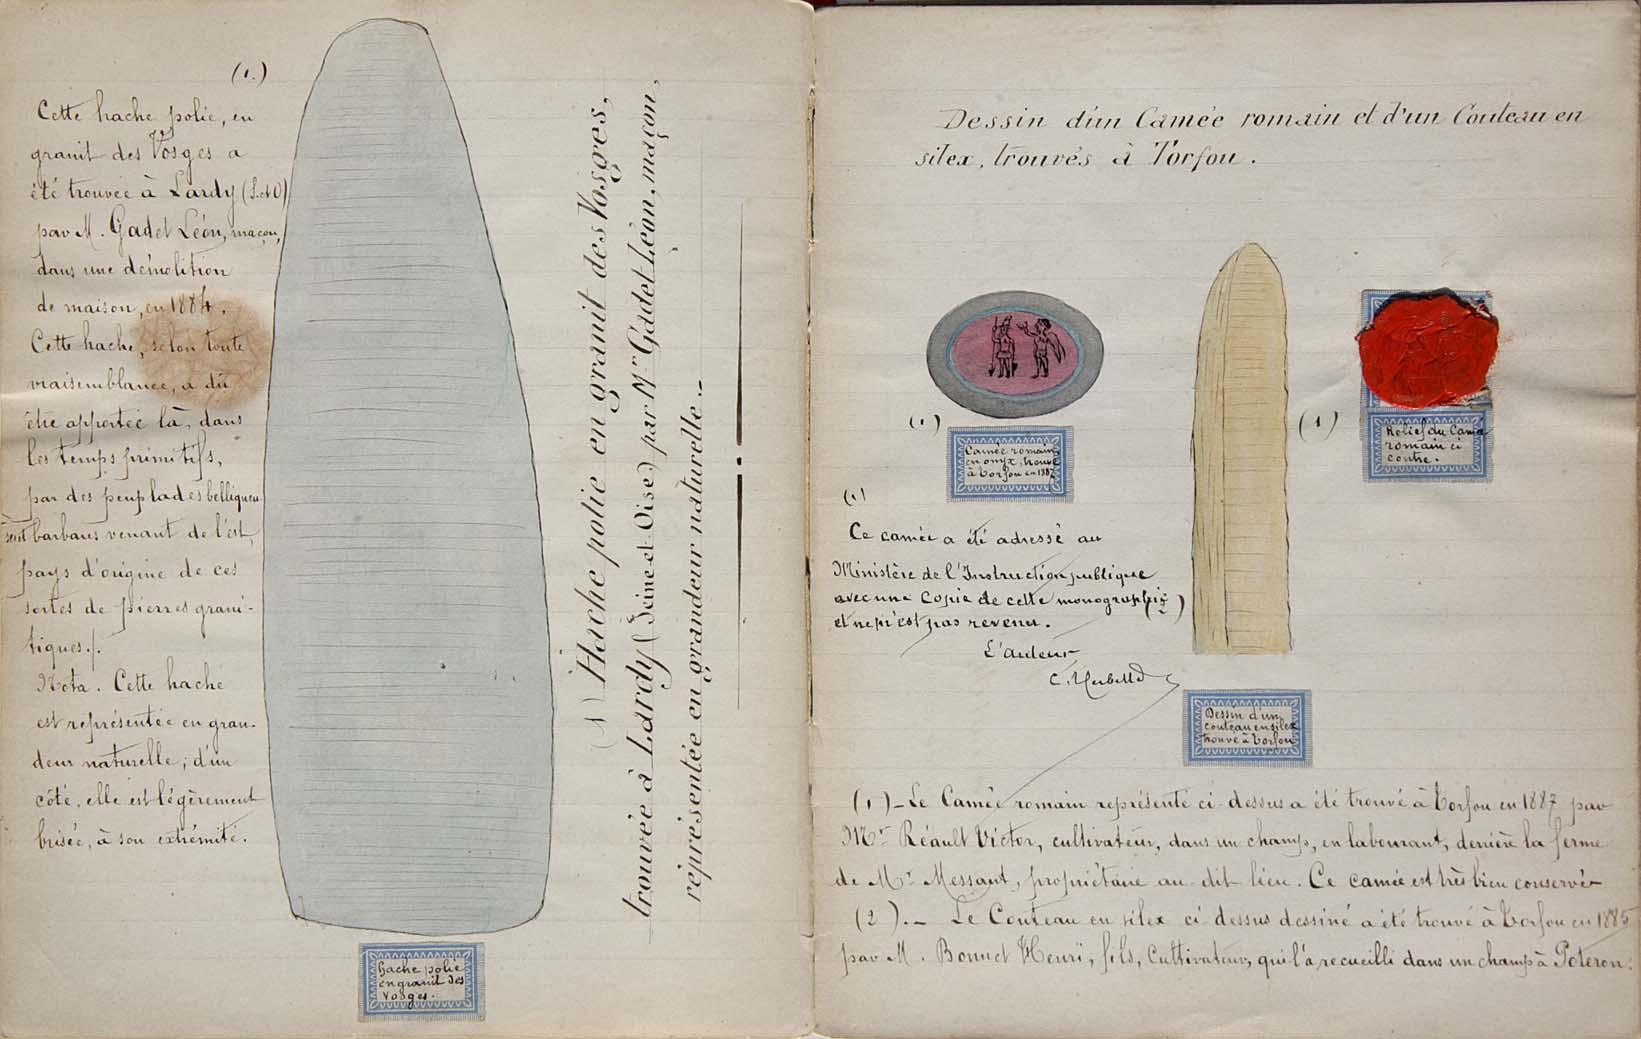 (1.)
Cette hache polie, en
granit des Vosges a
été trouvée à Lardy (S.et O)
par M. Gadet Léon, maçon,
dans une démolition
de maison, en 1884.
Cette hache, selon toute
vraisemblance, a dû
être apportée là, dans
les temps primitifs,
par des peuplades belliqueu
barbares venant de l'est,
pays d'origine de ces
sortes de pierres grani-
tiques./.
Nota. Cette hache
est représentée en gran-
deur naturelle; d'un
côté, elle est légèrement
brisée, à son extrémité.
hache polie
en granit des
Vosges.
(1) Hache polie en granit des Vosges,
trouvée à Lardy (Seine-et-Oise) par Mr Gadet Léon, maçon,
représentée en grandeur naturelle._
Dessin d'un Camée romain et d'un Couteau en
silex, trouvés à Torfou.
(1)
Camée romain
en onyx, trouvé
à Torfou en 1887
(1)
Relief du Camée
romain ci
contre.
(1)
Ce camée a été adressé au
Ministère de l'Instruction publique
avec une Copie de cette monographie
et ne m'est pas revenu.
(2)
L'auteur
Dessin d'un
couteau en silex
trouvé à Torfou
(1)_Le Camée romain représenté ci-dessus a été trouvé à Torfou en 1887 par
Mr Réault Victor, cultivateur, dans un champ, en labourant, derrière la ferme
de Mr Messant, propriétaire au dit lieu. Ce camée est très bien conservé
(2)._ Le Couteau en silex ci-dessus dessiné a été trouvé à Torfou en 1885
par M. Bonnet Henri, fils, Cultivateur, qui l'a recueilli dans un champ à Poteron.